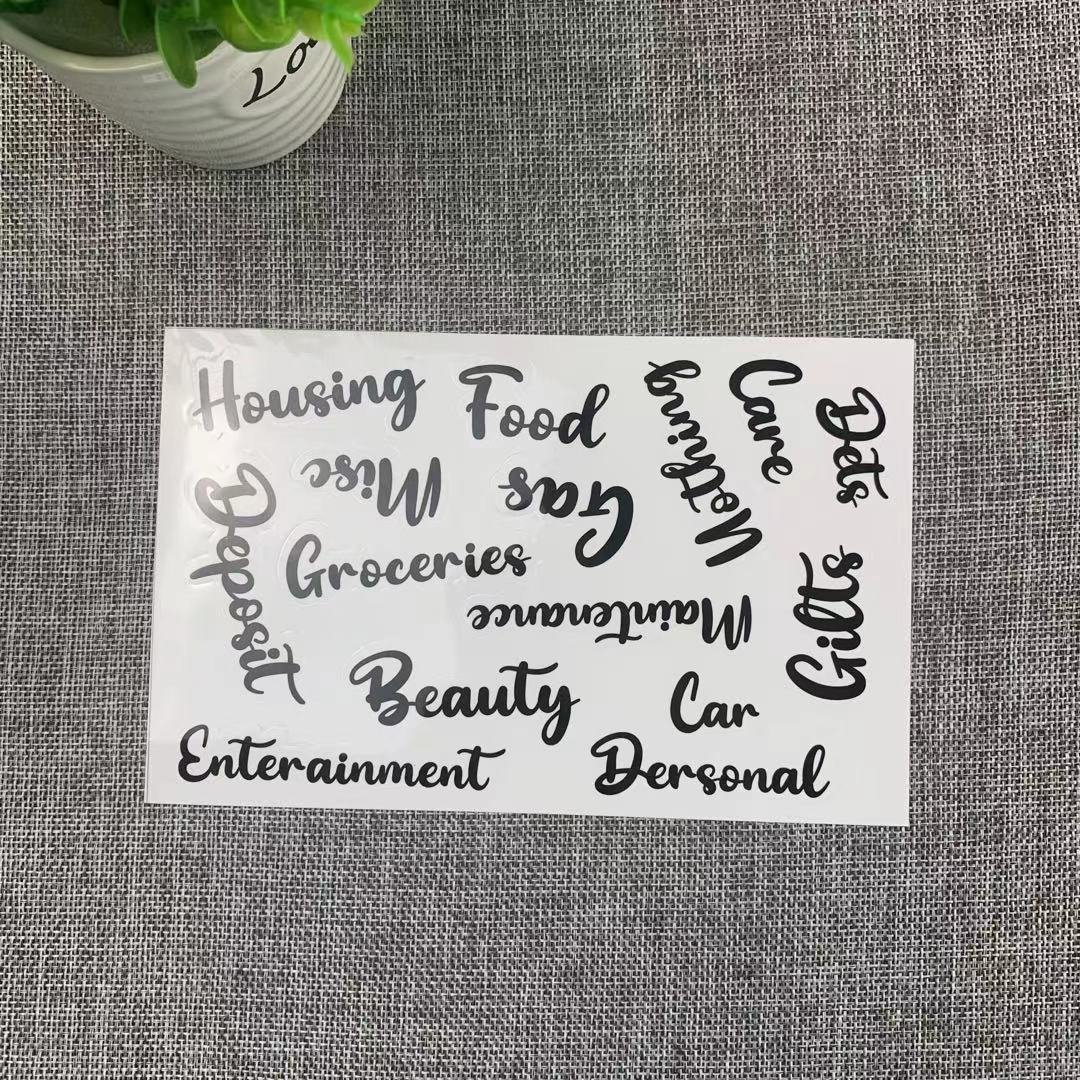 Housing
Food
Care
Dets
Misc
Gas
Deposit
Groceries
Maintenance
Gilts
Beauty
Car
Enterainment
Dersonal